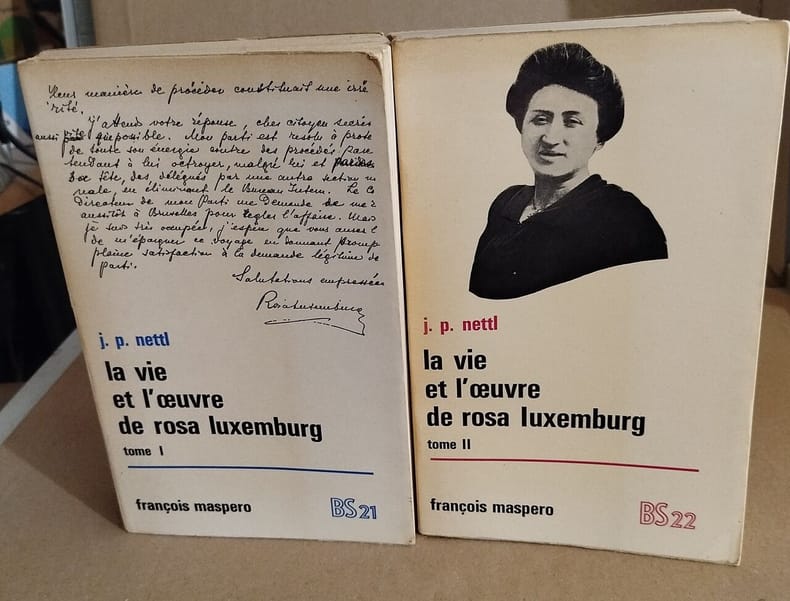 Leur manière de procéder constituait une irré
rité.
J'attends votre réponse, cher citoyen secrés
aussi vite que possible. Mon parti est résolu à prote
de toute son énergie contre des procédés
tendant à lui octroyer, malgré lui et
sa tête, des délégués par une autre section
nale, en éliminant le Bureau Intern. Le C
Directeur de mon Parti me demande de me
aussitôt à Bruxelles pour régler l'affaire. Mais
je suis très occupée, j'espère que vous
de m'épargner ce voyage en donnant promp
pleine satisfaction à la demande légitime de
parti.
Salutations empressées
Rosa Luxemburg
j. p. nettl
la vie
et l'œuvre
de rosa luxemburg
tome I
françois maspero
BS 21
j. p. nettl
la vie
et l'œuvre
de rosa luxemburg
tome II
françois maspero
BS 22